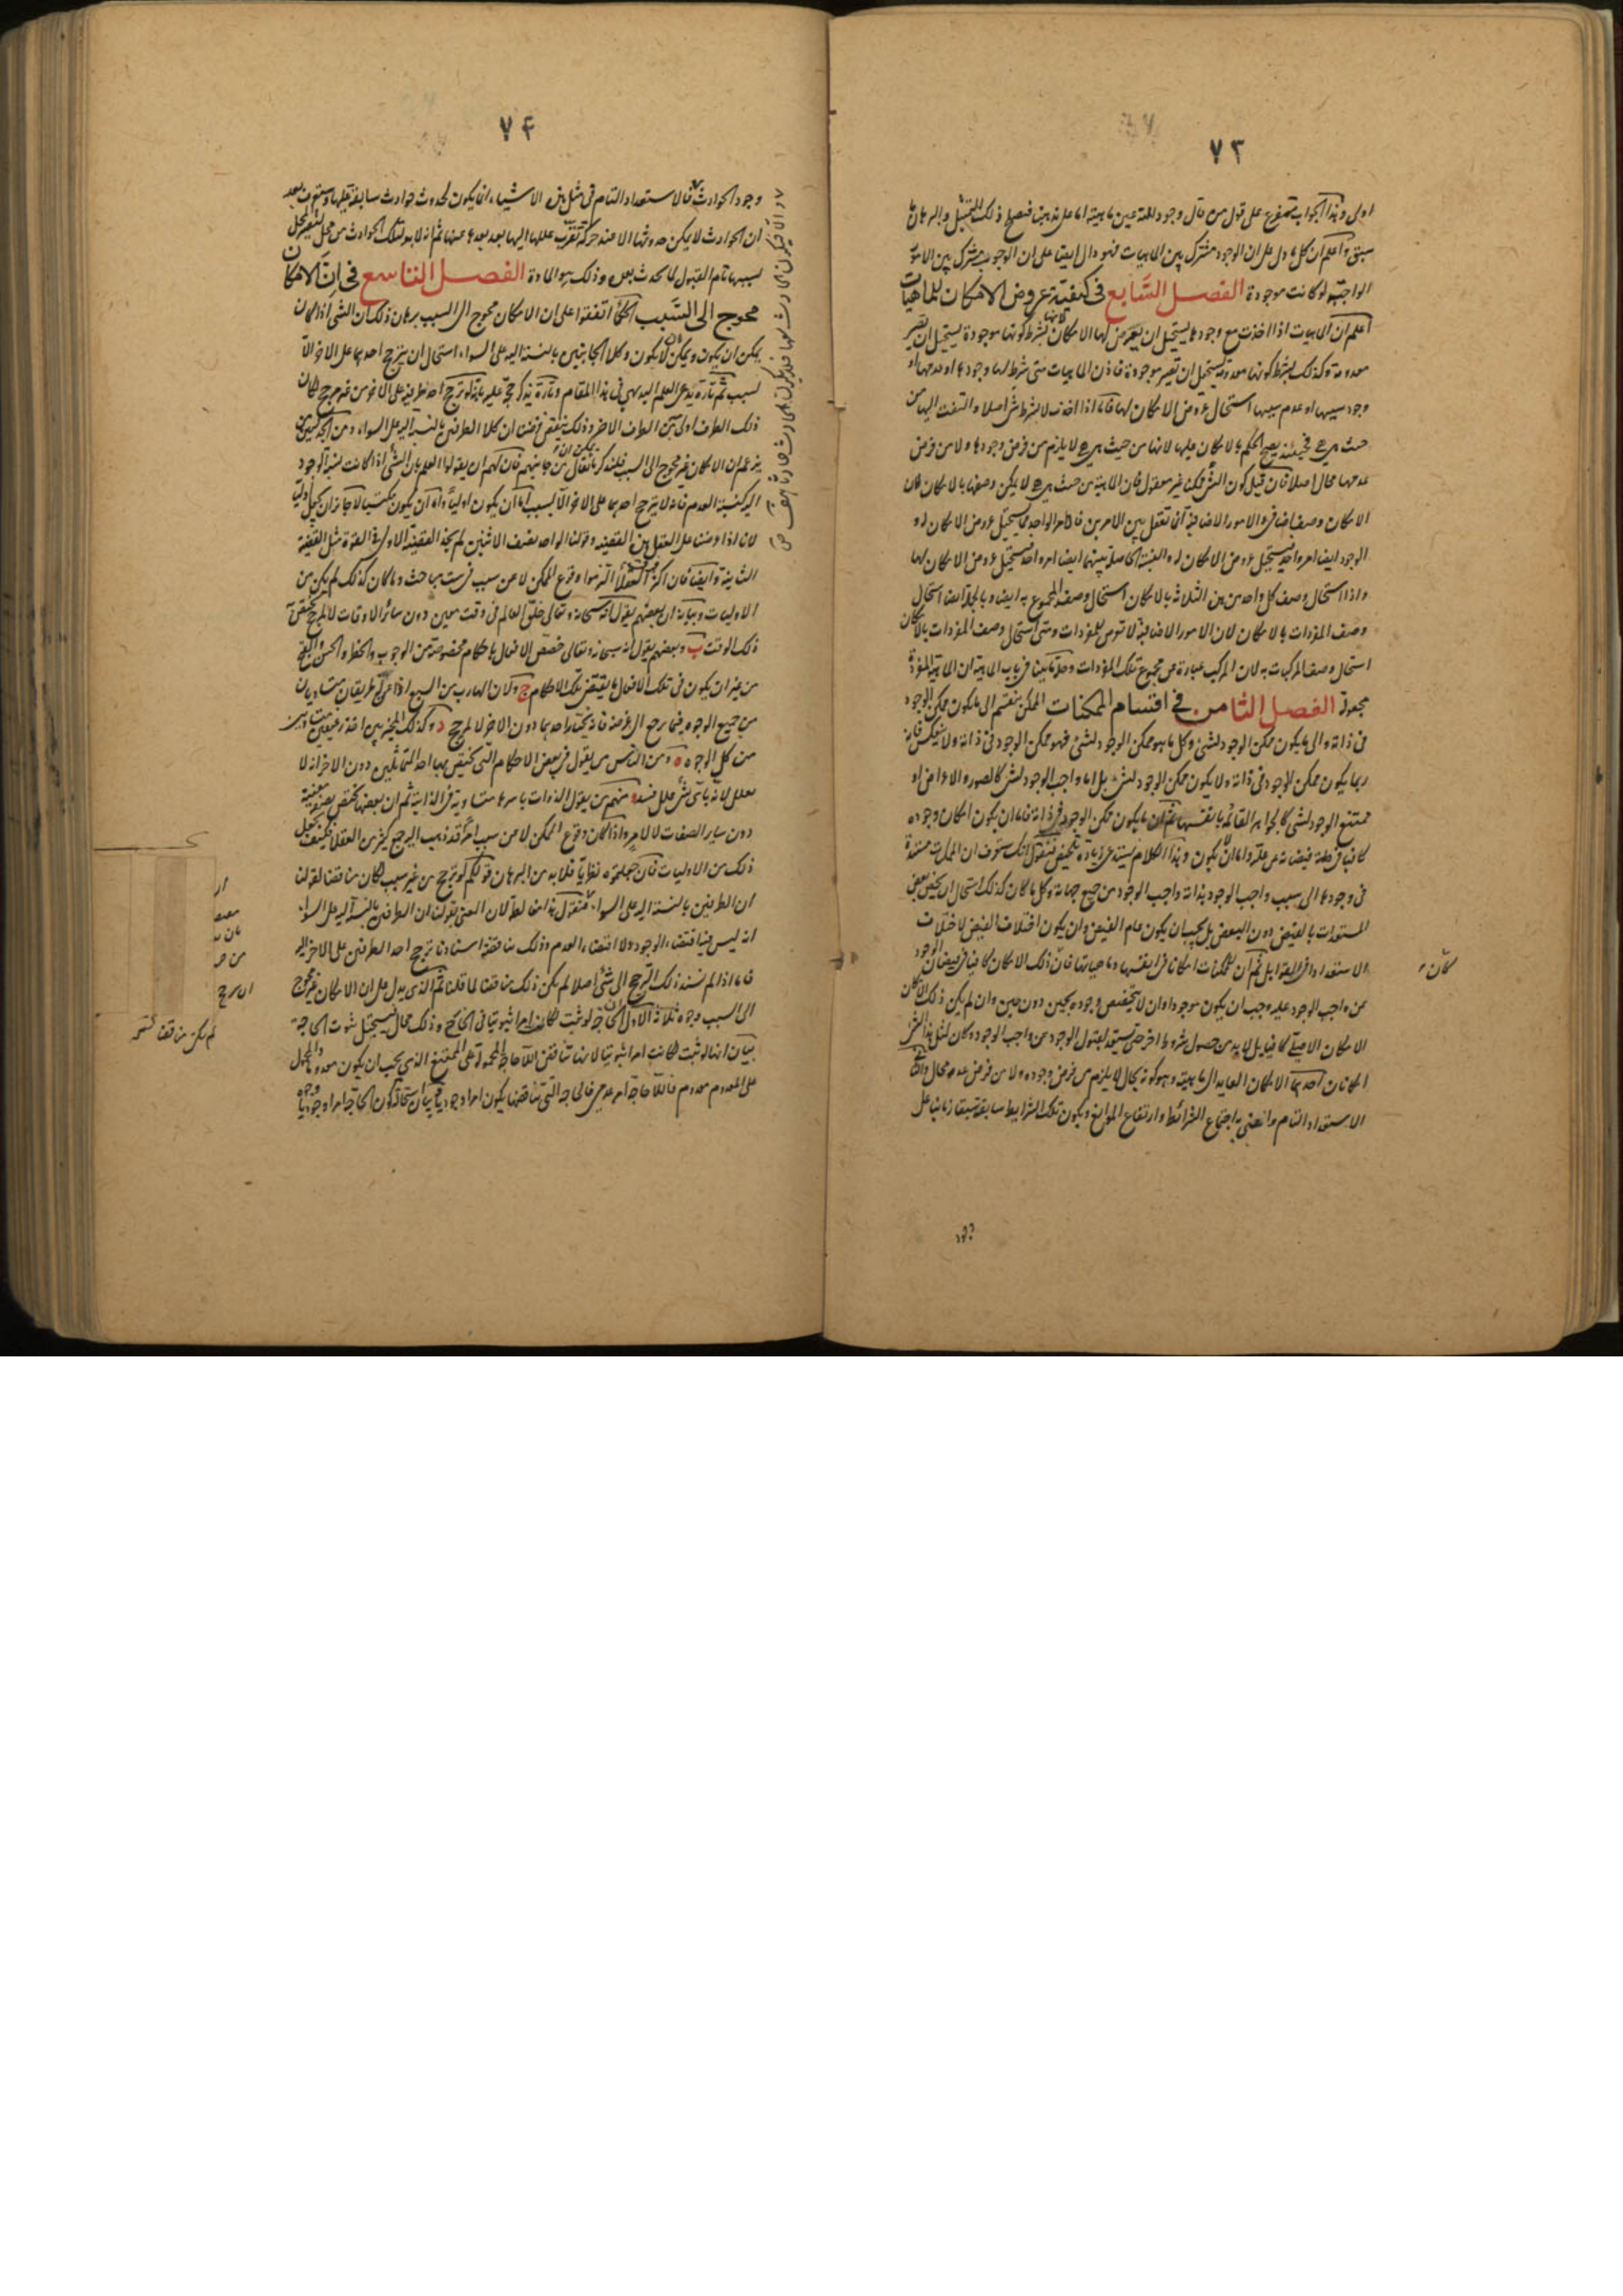 ٧٣
اولى وهذا الجواب يتفرع على قول من قال وجود الله عين ماهيته اما على مذهبنا فنعم ذلك
سبق واعلم ان كل ما دل على ان الوجود مشترك بين الماهيات فهو دال ايضا على ان الوجوب مشترك بين الامور
الواجبة لو كانت موجودة الفصل السابع فى كيفية عروض الامكان للماهيات
اعلم ان الماهيات اذا اخذت مع وجودها يستحيل ان يعرض لها الامكان لانها بشرط كونها موجودة يستحيل ان تصير
معدومة وكذلك بشرط كونها معدومة يستحيل ان تصير موجودة فاذن الماهيات متى شرط لها وجودها او عدمها او
وجود سببها او عدم سببها استحال عروض الامكان لها فاما اذا اخذت لا بشرط شئ اصلا والتفت اليها من
حيث هى هى فحينئذ يصح الحكم بالامكان عليها لانها من حيث هى هى لا يلزم من فرض وجودها ولا من فرض
عدمها محال اصلا فان قيل كون الشئ ممكنا غير معقول فان الماهية من حيث هى هى لا يمكن وصفها بالامكان فان
الامكان وصف اضافى والامور الاضافية انما تعقل بين الامرين فالامر الواحد يستحيل عروض الامكان له و
الوجود ايضا امر واحد يستحيل عروض الامكان له والنسبة الحاصلة بينهما ايضا امر واحد فيستحيل عروض الامكان لها
واذا استحال وصف كل واحد من هذه الثلاثة بالامكان استحال وصف المجموع به ايضا وبالجملة ايضا استحال
وصف المفردات بالامكان لان الامور الاضافية لا تعرض للمفردات ومتى استحال وصف المفردات بالامكان
استحال وصف المركبات به لان المركب عبارة عن مجموع تلك المفردات وحله ما بينا فى باب الماهية ان الماهية المفردة
مجعولة الفصل الثامن فى اقتسام الممكنات الممكن ينقسم الى ما يكون ممكن الوجود
فى ذاته والى ما يكون ممكن الوجود لشئ وكل ما هو ممكن الوجود لشئ فهو ممكن الوجود فى ذاته ولا ينعكس فانه
ربما يكون ممكن الوجود فى ذاته ولا يكون ممكن الوجود لشئ بل اما واجب الوجود لشئ كالصور والاعراض او
ممتنع الوجود لشئ كالجواهر القائمة بانفسها ثم ان ما يكون ممكن الوجود فى ذاته فاما ان يكون امكان وجوده
كافيا فى فيضانه عن علته واما ان لا يكون وهذا الكلام يستدعى زيادة تلخيص فنقول انك ستعرف ان الممكنات مستندة
فى وجودها الى سبب واجب الوجود بذاته واجب الوجود من جميع جهاته وكل ما كان كذلك استحال ان يختص بعض
المستعدات بالفيض دون البعض بل يجب ان يكون عام الفيض وان يكون اختلاف الفيض لاختلاف
الاستعداد فى القوابل ثم ان للممكنات امكانا فى انفسها وماهياتها فان ذلك الامكان كافيا فى فيضان الوجود
كان
عن واجب الوجود عليه وجب ان يكون موجودا وان لا يتخصص وجوده بحين دون حين وان لم يكن ذلك الامكان
الامكان الاصلى كافيا بل لا بد من حصول شروط اخر حتى يستعد لقبول الوجود من واجب الوجود كان لمثل هذا الشئ
امكانان احدهما الامكان العايد الى ماهيته وهو كونه بحال لا يلزم من فرض وجوده ولا من فرض عدمه محال والثانى
الاستعداد التام واعنى به اجتماع الشرائط وارتفاع الموانع ويكون تلك الشرايط سابقة سبقا زمانيا على
وجود
٧٤
وجود الحوادث فالاستعداد التام فى مثل هذه الاشياء انما يكون لحدوث حوادث سابقة قبلها وستعرف بعد
ان الحوادث لا يمكن حدوثها الا عند حركة تقرب عللها اليها بعد بعدها عنها ثم انه لا بد لتلك الحوادث من محل ليتغير المحل
بسببها تام القبول لما يحدث بعد وذلك هو المادة الفصل التاسع فى ان الامكان
محوج الى السبب الحكماء اتفقوا على ان الامكان محوج الى السبب برهان ذلك ان الشئ اذا كان
يمكن ان يكون ويمكن ان لا يكون وكلا الجانبين بالنسبة اليه على السواء استحال ان يترجح احدهما على الاخر الا
لسبب ثم تارة يدعى العلم البديهى فى هذا المقام وتارة يذكر حجة عليه بانه لو ترجح احد طرفيه على الاخر من غير مرجح كان
ذلك الطرف اولى من الطرف الاخر وذلك يناقض فرضنا ان كلا الطرفين بالنسبة اليه على السواء ومن
يزعم ان الامكان غير محوج الى السبب فلنذكر ما يمكن ان يقال من جانبهم فان لهم ان يقولوا العلم بان الشئ اذا كانت نسبة الوجود
اليه كنسبة العدم فانه لا يترجح احدهما على الاخر الا بسبب اما ان يكون اوليا واما ان يكون مكتسبا لا جائز ان يكون اوليا
لانا اذا عرضنا على العقل هذه القضية وقولنا الواحد نصف الاثنين لم يجد القضية الاولى فى القوة مثل القضية
الثانية وايضا فان اكثر العقلاء التزموا وقوع الممكن لا عن سبب فى ست مباحث وما كان كذلك لم يكن من
الاوليات وبيانه ا ان بعضهم يقول انه سبحانه وتعالى خلق العالم فى وقت معين دون سائر الاوقات لا لمرجح يختص
ذلك الوقت ب وبعضهم يقول انه سبحانه وتعالى خصص الافعال باحكام مخصوصة من الوجوب والحظر والحسن والقبح
من غير ان يكون فى تلك الافعال ما يقتضى تلك الاحكام ج ولان الهارب من السبع اذا عن له طريقان متساويان
من جميع الوجوه فيما يرجع الى غرضه فانه يختار احدهما دون الاخر لا لمرجح د وكذلك المخير بين اخذ رغيفين متساويين
من كل الوجوه ه ومن الناس من يقول فى بعض الاحكام التى يختص بها احد المتماثلين دون الاخر انه لا
معلل لانه باى شئ علل فسد و منهم من يقول الذوات باسرها متساوية فى الذاتية ثم ان بعضها يختص بصفة معينة
دون سائر الصفات لا لامر واذا كان وقوع الممكن لا عن سبب امر قد ذهب اليه جمع كثير من العقلاء فكيف يجعل
ذلك من الاوليات فان جعلتموه نظريا فلا بد من البرهان قولكم لو ترجح من غير سبب كان مناقضا لقولنا
ان الطرفين بالنسبة اليه على السواء فنقول هذا مغالطة لان المعنى بقولنا ان الطرفين بالنسبة اليه على السواء
انه ليس فيه اقتضاء الوجود ولا اقتضاء العدم وذلك مناقضة اسنادنا ترجح احد الطرفين على الاخر اليه
فاما اذا لم نسند ذلك الترجح الى شئ اصلا لم يكن ذلك مناقضا لما قلناه ثم الذى يدل على ان الامكان غير محوج
الى السبب وجوه ثلاثة الاول ان الحاجة لو ثبت لكان امرا ثبوتيا فى الخارج وذلك محال فيستحيل ثبوت الحاجة
بيان انها لو ثبت لكانت امرا ثبوتيا لانها تناقض اللاحاجة المحمولة على الممتنع الذى يجب ان يكون معدوما والمحمول
على المعدوم معدوم فاللاحاجة امر عدمى فالحاجة التى تناقضها يكون امرا وجوديا بيان استحالة كون الحاجة امرا وجوديا
لم يكن مناقضا